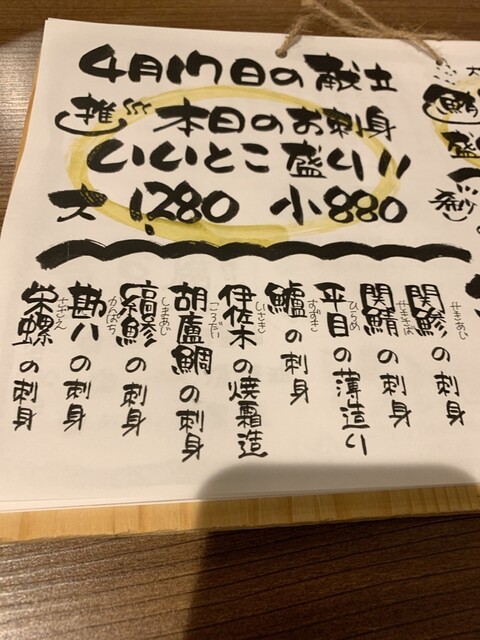 4月17日の献立
推し 本日のお刺身
いいとこ盛り!!
大 1,280 小 880
関鯵の刺身
せきあじ
関鯖の刺身
せきさば
平目の薄造り
ひらめ
鱸の刺身
すずき
伊佐木の焼霜造
いさき
胡廬鯛の刺身
ころだい
縞鯵の刺身
しまあじ
勘八の刺身
かんぱち
栄螺の刺身
さざえ